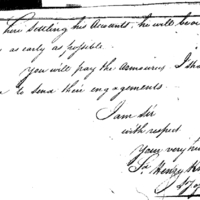 his Accounts, he will
as early as possible.
You will pay the Armourers I
to send their engagements.
I am Sir
with respect
Your very
Sr Henry